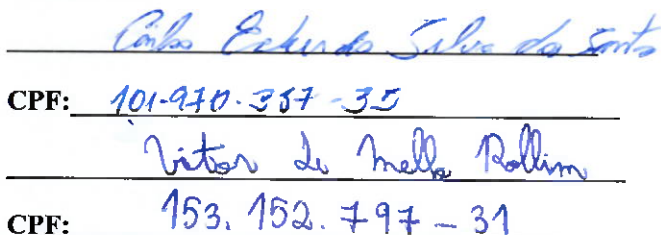 Carlos Eduardo Silva dos Santos
CPF: 101.970.357-35
Vitor de Mello Rollim
CPF: 153.152.797-31